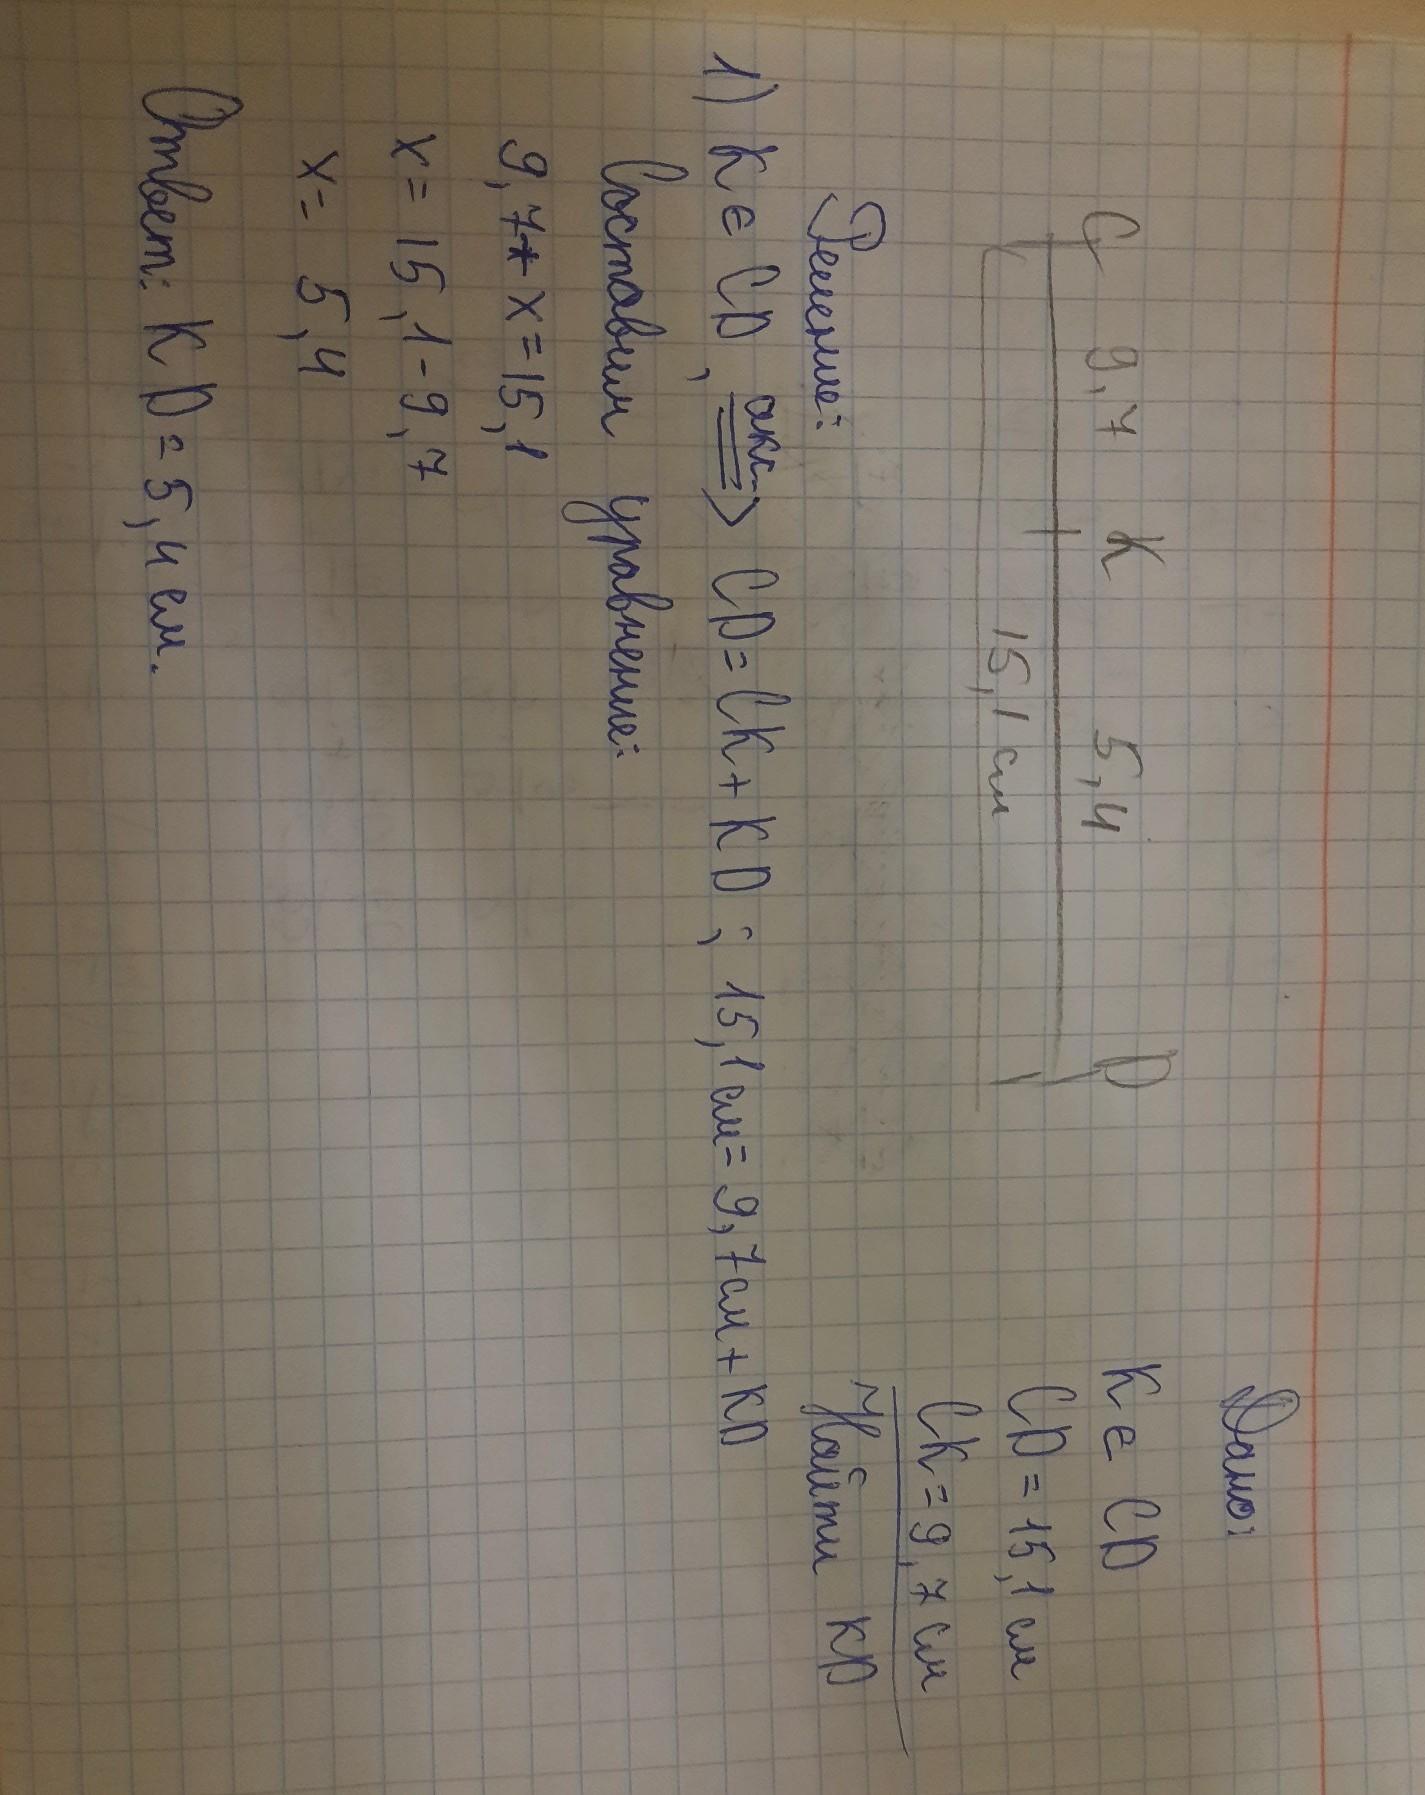 Дано:
C 9,7 K 5,4 D
K ∈ CD
15,1 см
CD = 15,1 см
CK = 9,7 см
Найти KD
Решение:
1) K ∈ CD, акс. => CD = CK + KD ; 15,1 см = 9,7 см + KD
Составим уравнение:
9,7 + x = 15,1
x = 15,1 - 9,7
x = 5,4
Ответ: KD = 5,4 см.